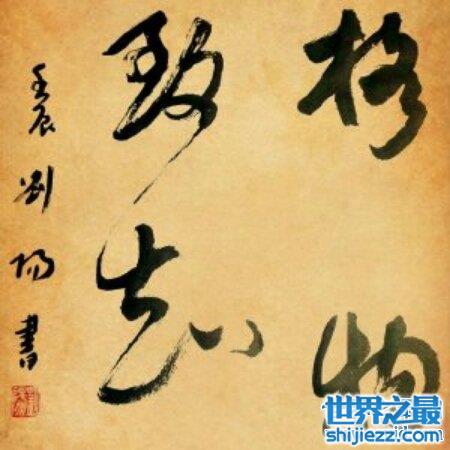 格物
致知
壬辰刘阳书
世界之最
shijiezz.com